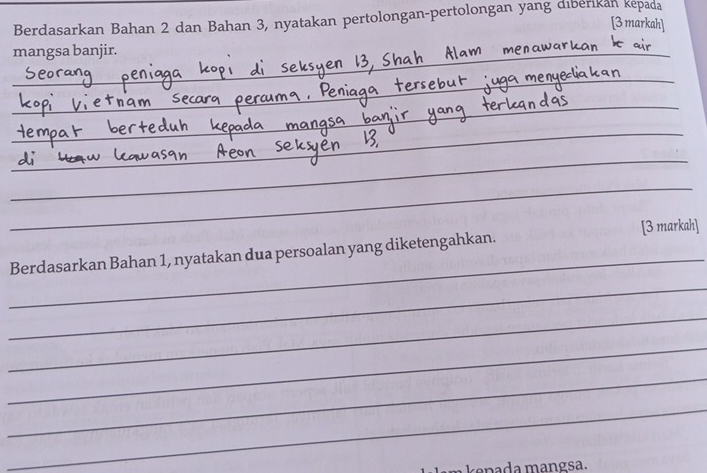 Berdasarkan Bahan 2 dan Bahan 3, nyatakan pertolongan-pertolongan yang diberikan kepada
mangsa banjir.
[3 markah]
Seorang peniaga kopi di seksyen 13, Shah Alam menawarkan air
kopi Vietnam secara percuma. Peniaga tersebut juga menyediakan
tempat berteduh kepada mangsa banjir yang terkandas
di kawasan Aeon seksyen 13.
[3 markah]
Berdasarkan Bahan 1, nyatakan dua persoalan yang diketengahkan.
kepada mangsa.